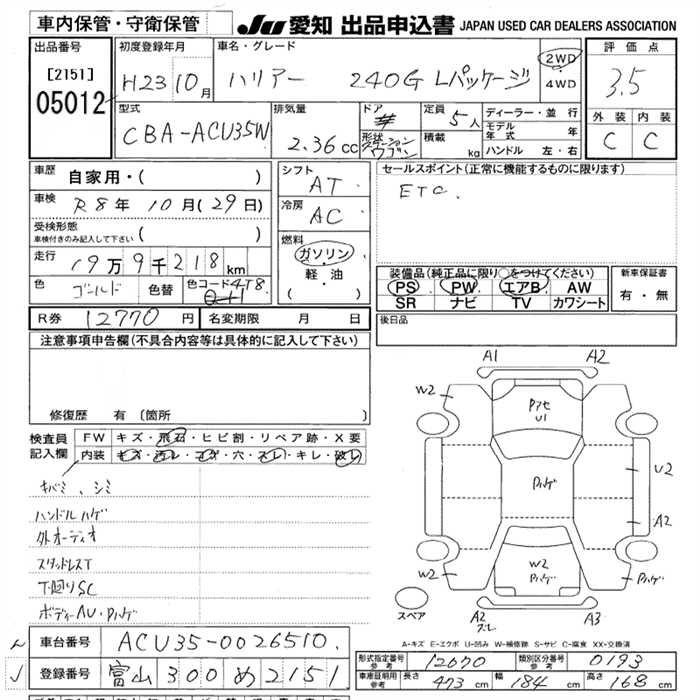 車内保管・守衛保管 JU 愛知 出品申込書 JAPAN USED CAR DEALERS ASSOCIATION
出品番号 初度登録年月 車名・グレード 評価点
[2151] 05012 H23 10月 ハリアー 240G Lパッケージ 2WD 4WD 3.5
型式 排気量 ドア 定員 ディーラー・並行 外装 内装
CBA-ACU35W 2.36cc 形状 ステーションワゴン 5人 積載 kg モデル年式 年 ハンドル 左・右 C C
車歴 自家用・( ) シフト AT セールスポイント(正常に機能するものに限ります)
車検 R8年10月(29日) 冷房 AC ETC.
受検形態 車検付きのみ記入して下さい ( )
燃料 ガソリン・軽・油 ( )
走行 19万9千218km
色 ゴールド 色替 色コード 4T8
装備品(純正品に限り○をつけてください) 新車保証書
PS PW エアB AW 有・無
SR ナビ TV カワシート
R券 12770円 名変期限 月 日 後日品
注意事項申告欄(不具合内容等は具体的に記入して下さい)
修復歴 有 (箇所
検査員記入欄 FW キズ・飛石・ヒビ割・リペア跡・X要
内装 キズ・汚レ・コゲ・穴・スレ・キレ・破レ
キバミ、シミ
ハンドルハゲ
外オーディオ
スタッドレスT
下廻りSC
ボディーAU・Pハゲ
A1 A2
W2
U1
Pハゲ U2
A2
W2 W2 Pハゲ Pハゲ
スペア A2 スレ A3
A-キズ E-エクボ U-凹み W-補修跡 S-サビ C-腐食 XX-交換済
車台番号 ACU35-0026510.
登録番号 富山 300 め 2151
形式指定番号 参考 12670 類別区分番号 参考 0193
車庫証明用 参考 長さ 473cm 幅 184cm 高さ 168cm